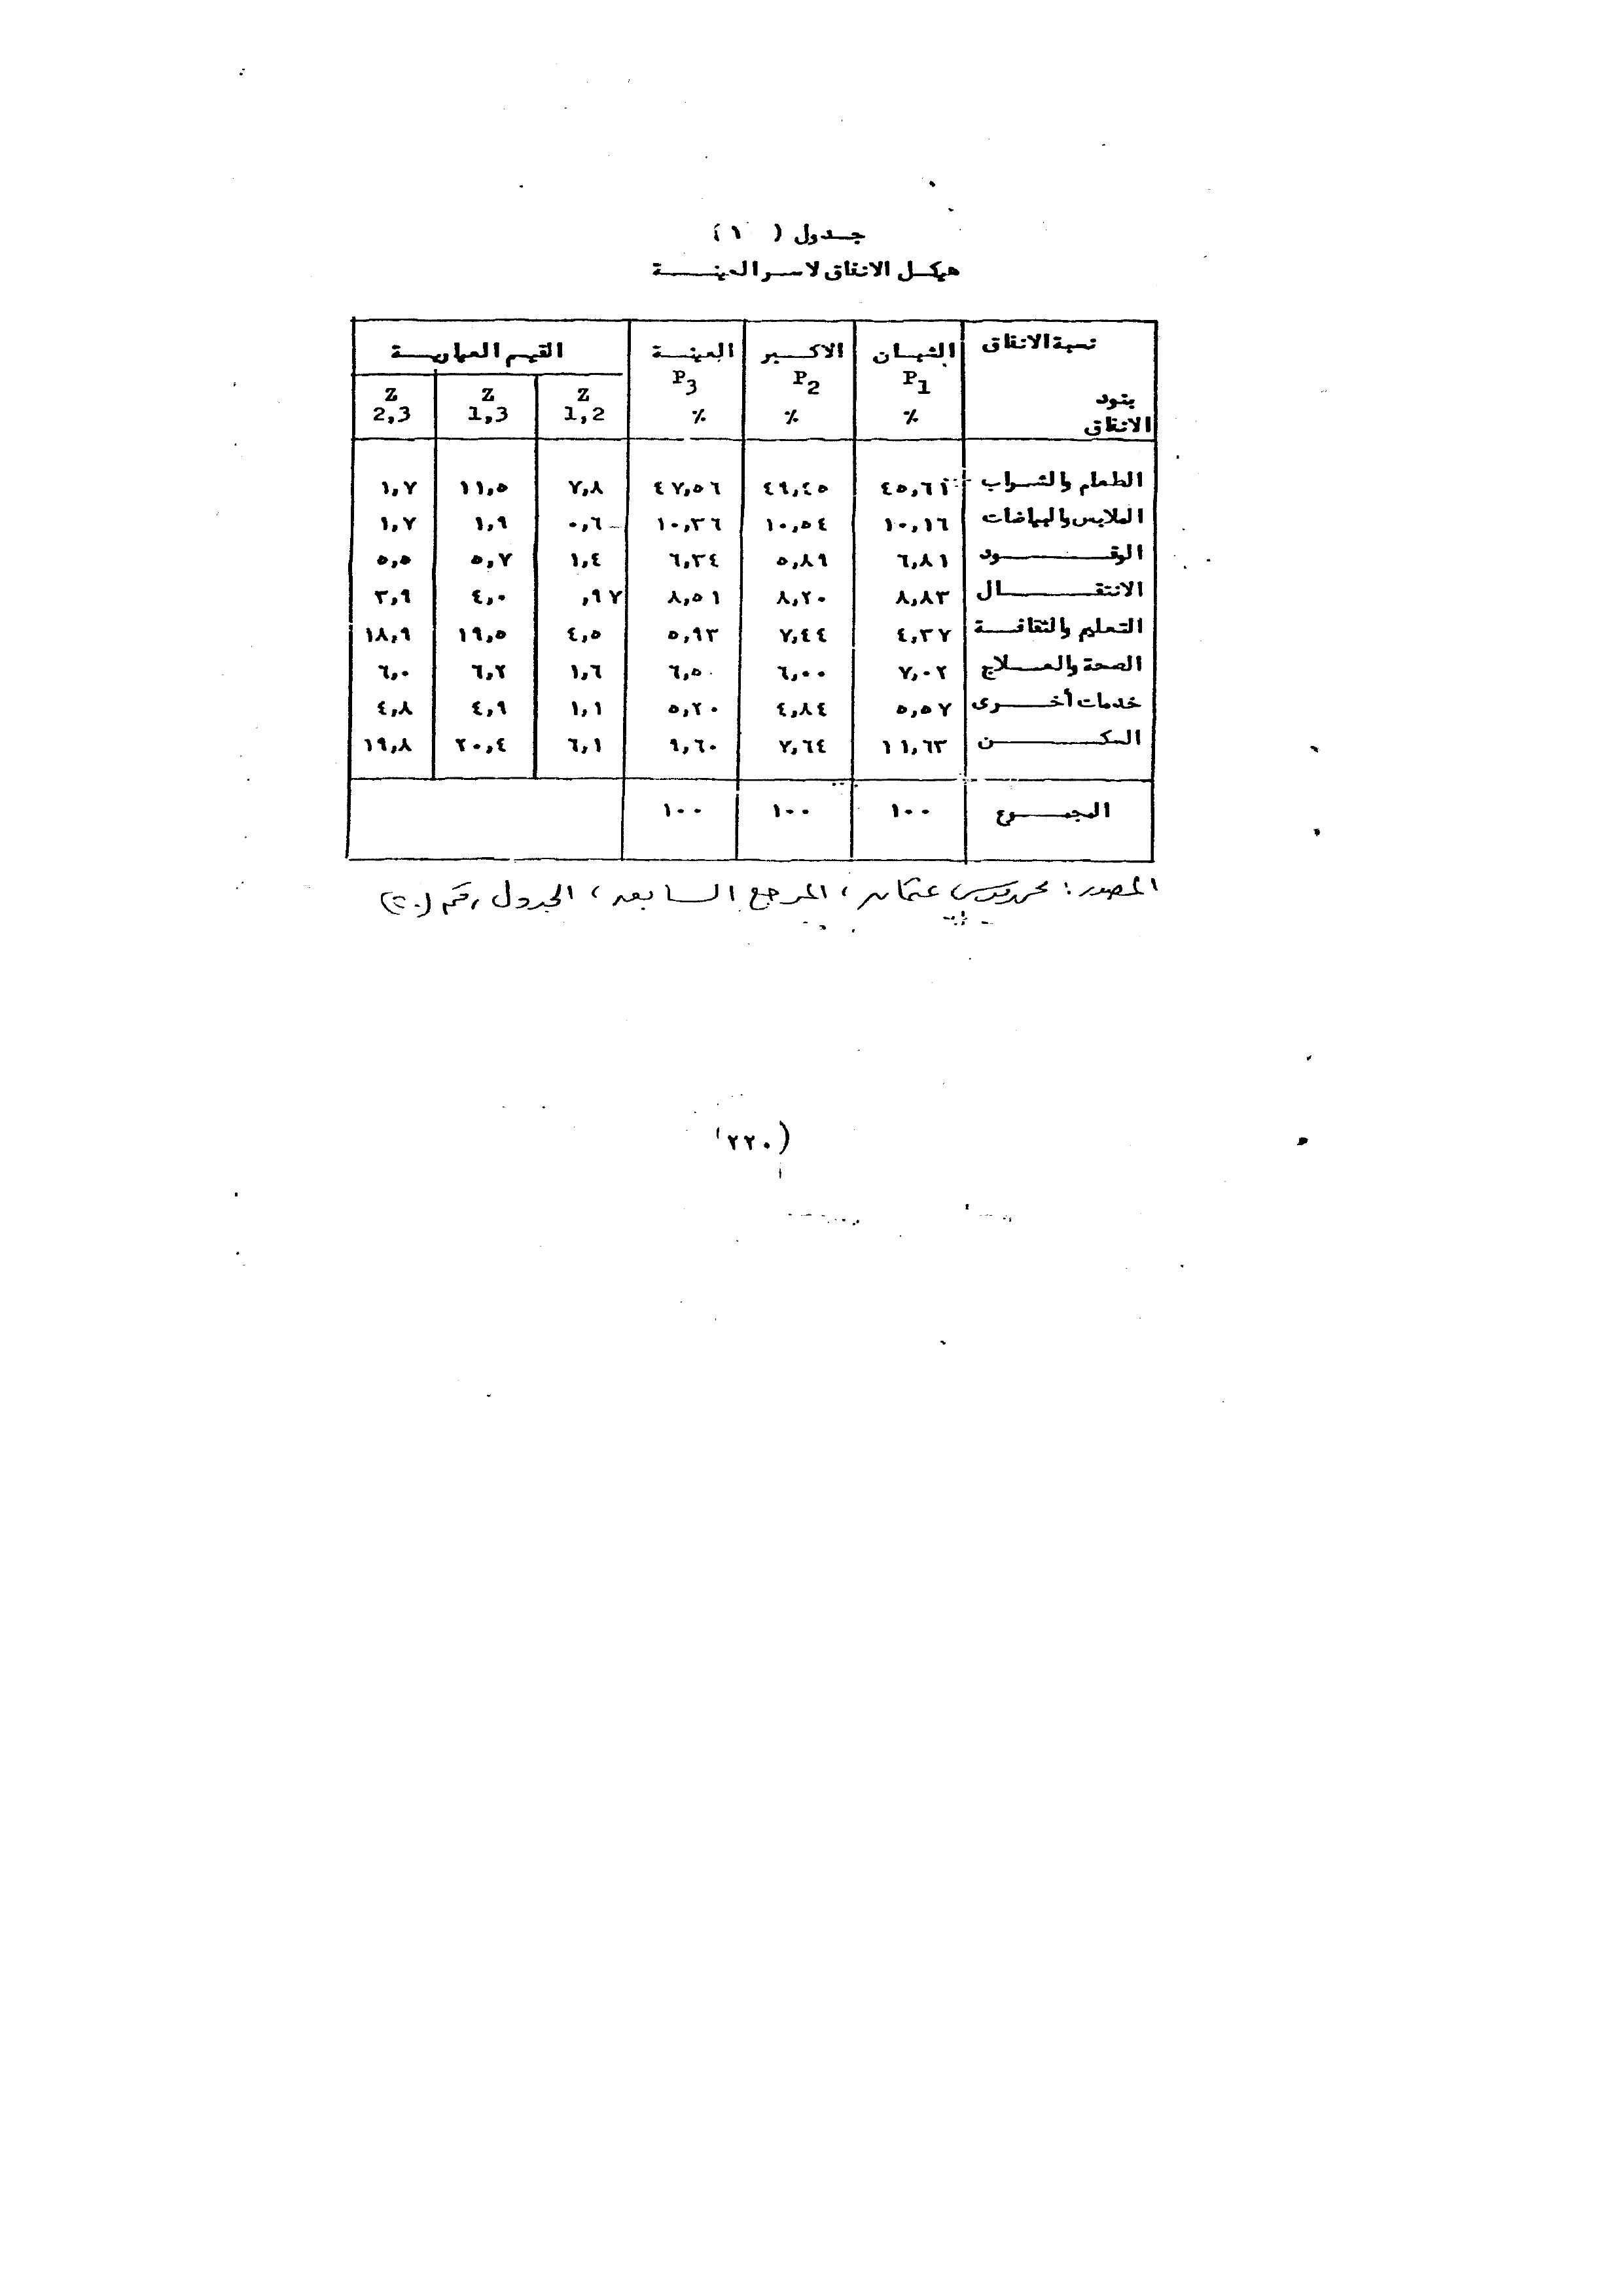 جدول ( ١ )
هيكل الانفاق لاسر العينة
نسبة الانفاق الشبان الاكبر العينة القيم المعيارية
P1 P2 P3
بنود الانفاق % % % Z 1,2 Z 1,3 Z 2,3
الطعام والشراب ٤٥,٦١ ٤٩,٤٥ ٤٧,٥٦ ٧,٨ ١١,٥ ١,٧
الملابس والبياضات ١٠,١٦ ١٠,٥٤ ١٠,٣٦ ٠,٦ ١,٩ ١,٧
الوقود ٦,٨١ ٥,٨٩ ٦,٣٤ ١,٤ ٥,٧ ٥,٥
الانتقال ٨,٨٣ ٨,٢٠ ٨,٥١ ,٩٧ ٤,٠ ٣,٩
التعليم والثقافة ٤,٣٧ ٧,٤٤ ٥,٩٣ ٤,٥ ١٩,٥ ١٨,٩
الصحة والعلاج ٧,٠٢ ٦,٠٠ ٦,٥٠ ١,٦ ٦,٢ ٦,٠
خدمات أخرى ٥,٥٧ ٤,٨٤ ٥,٢٠ ١,١ ٤,٩ ٤,٨
المسكن ١١,٦٣ ٧,٦٤ ٩,٦٠ ٦,١ ٢٠,٤ ١٩,٨
المجموع ١٠٠ ١٠٠ ١٠٠
المصدر : عثمان ، المرجع السابق ، الجدول رقم
(٢٢٠)